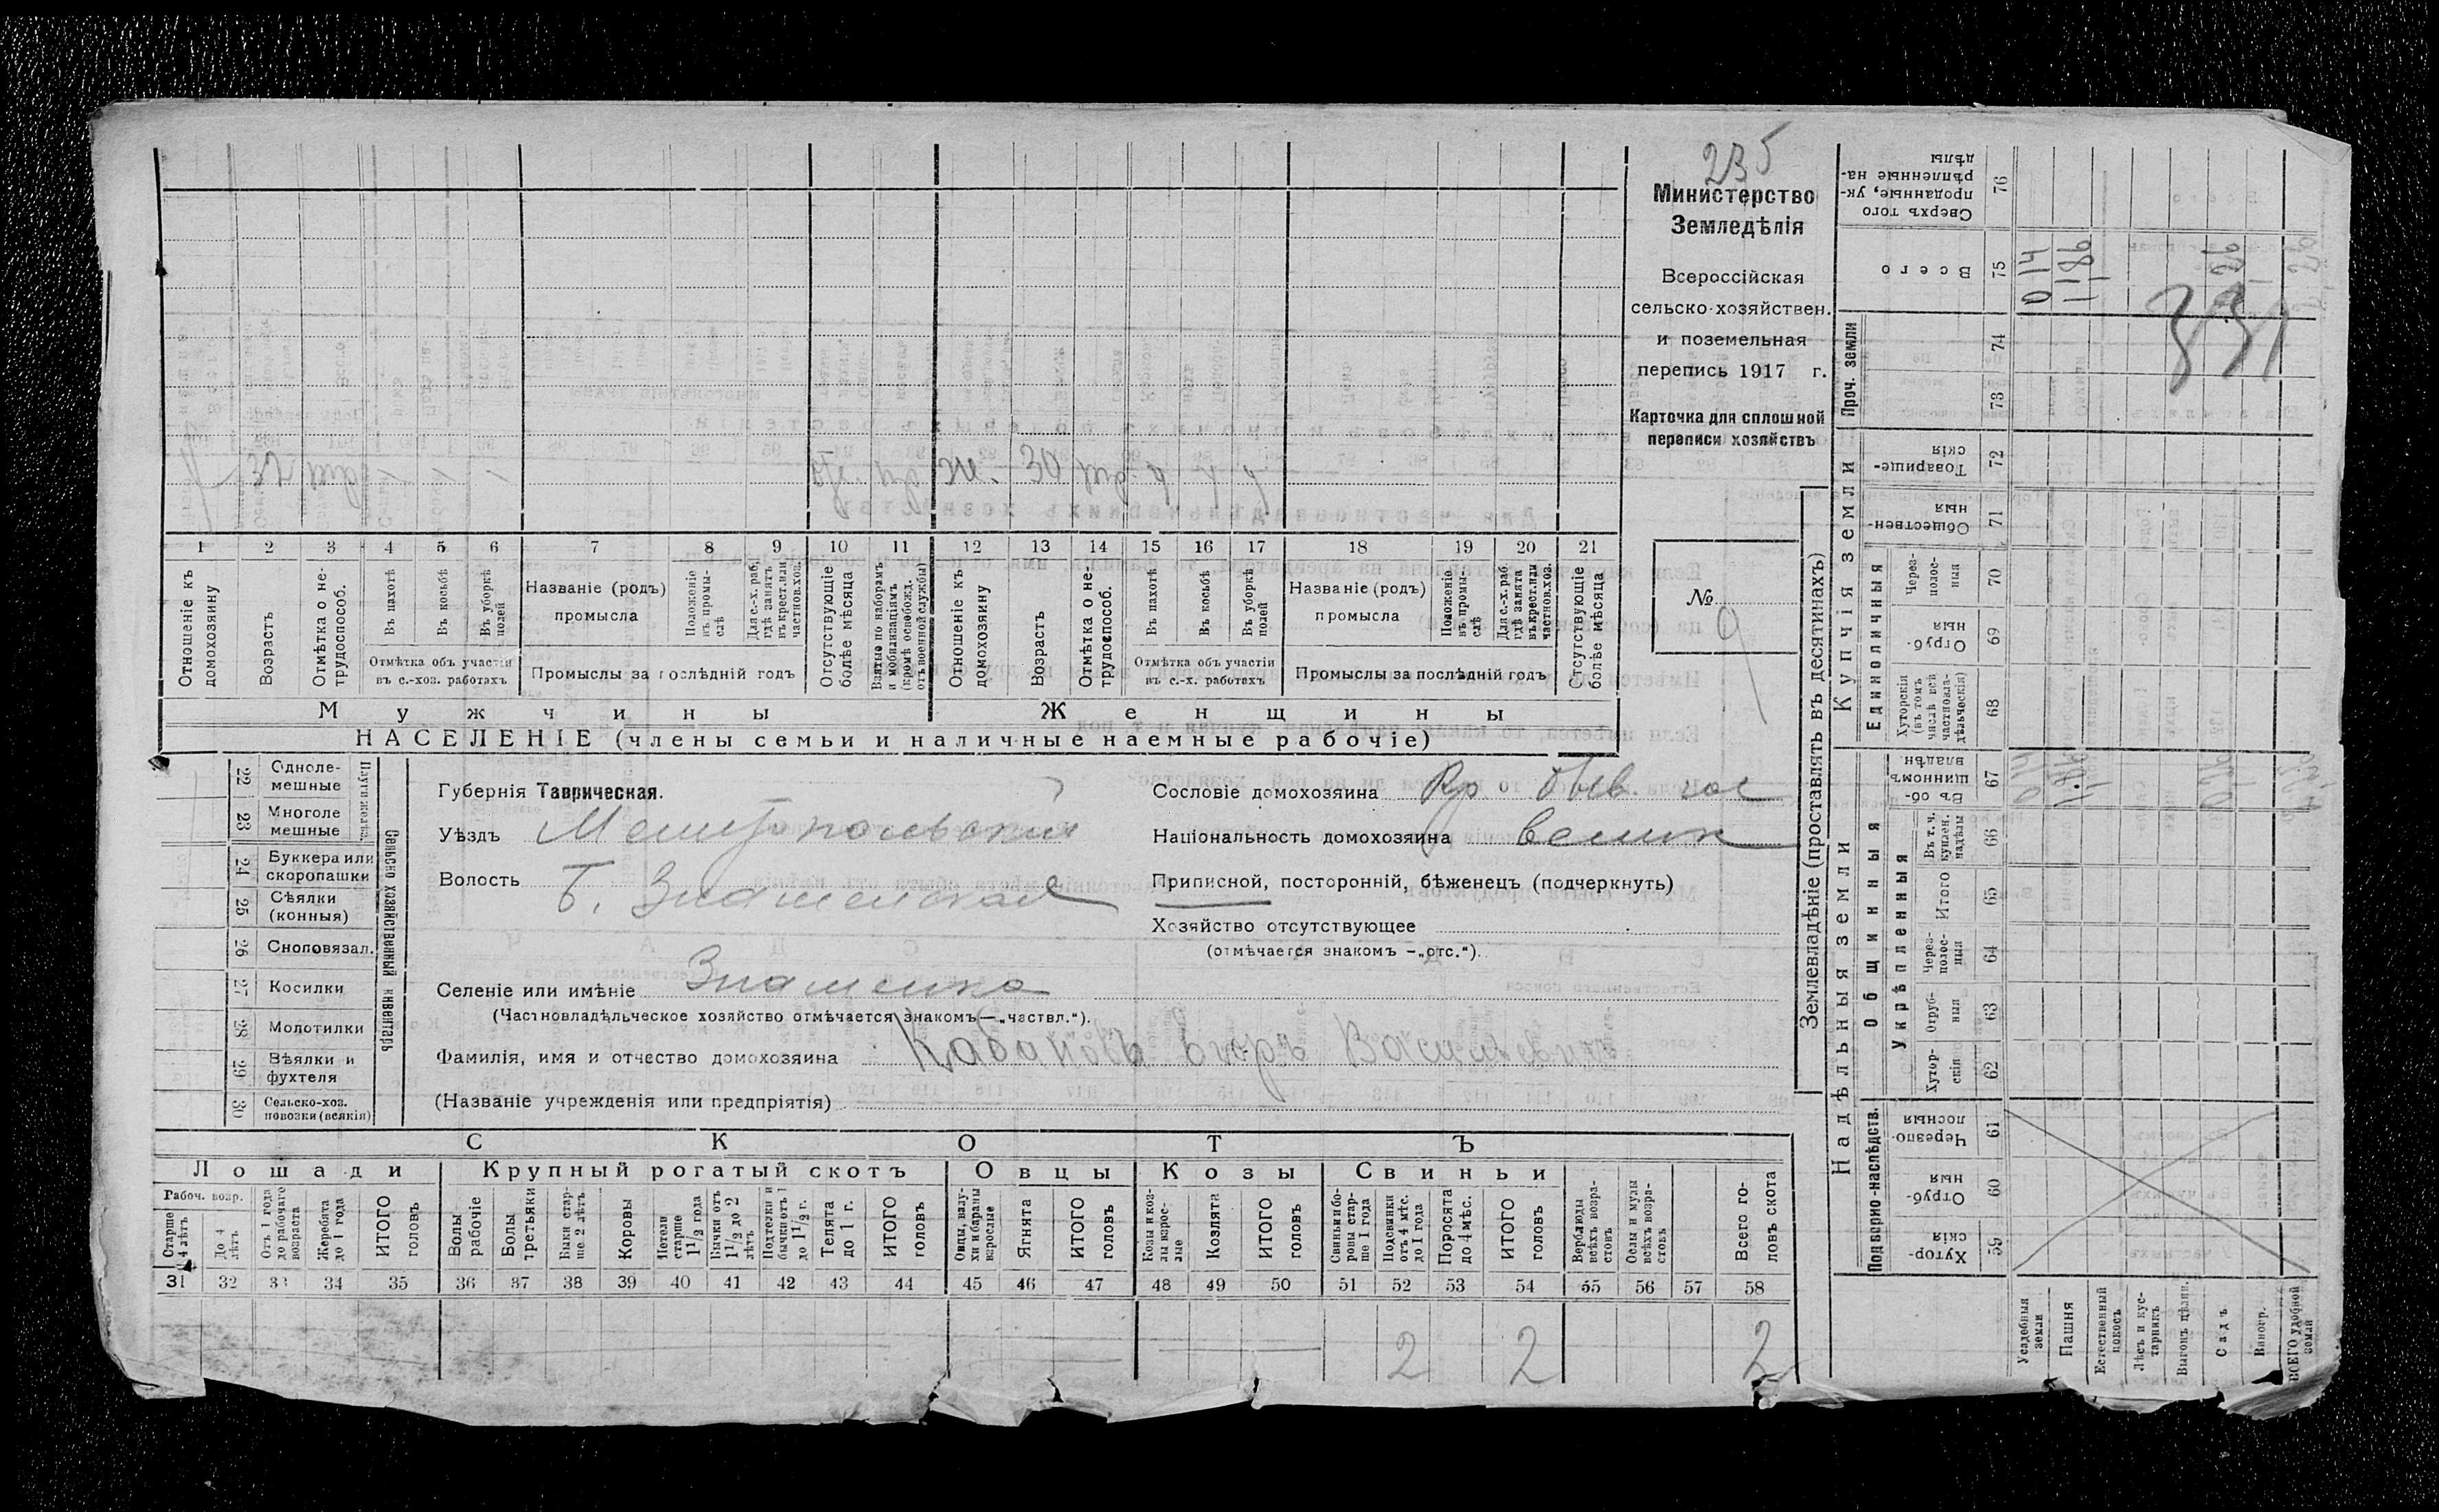 235
Министерство
Земледѣлія
Всероссійская
сельско-хозяйствен.
и поземельная
перепись 1917 г.
Карточка для сплошной
переписи хозяйствъ
№
9
32
ж. 30
1 2 3 4 5 6 7 8 9 10 11 12 13 14 15 16 17 18 19 20 21
Отношеніе къ домохозяину
Возрастъ
Отмѣтка о не-трудоспособ.
Въ пахотѣ
Въ косьбѣ
Въ уборкѣ полей
Отмѣтка объ участіи въ с.-хоз. работахъ
Названіе (родъ) промысла
Положеніе въ промы-слѣ
Для с.-х. раб. гдѣ занятъ въ крест. или частнов. хоз.
Промыслы за послѣдній годъ
Отсутствующіе болѣе мѣсяца
Взятые по наборамъ и мобилизаціямъ (кромѣ освобожд. отъ военной службы)
Отношеніе къ домохозяину
Возрастъ
Отмѣтка о не-трудоспособ.
Въ пахотѣ
Въ косьбѣ
Въ уборкѣ полей
Отмѣтка объ участіи въ с.-х. работахъ
Названіе (родъ) промысла
Положеніе въ промы-слѣ
Для с.-х. раб. гдѣ занята въ крест. или частнов. хоз.
Промыслы за послѣдній годъ
Отсутствующіе болѣе мѣсяца
Мужчины
Женщины
НАСЕЛЕНІЕ (члены семьи и наличные наемные рабочіе)
22 Одноле-мешные
23 Многоле мешные
24 Буккера или скоропашки
25 Сѣялки (конныя)
26 Сноповязал.
27 Косилки
28 Молотилки
29 Вѣялки и фухтеля
30 Сельско-хоз. повозки (всякія)
Сельско хозяйственный инвентарь
Губернія Таврическая.
Уѣздъ Мелитопольскій
Волость Б. Знаменская
Селеніе или имѣніе Знаменка
(Частновладѣльческое хозяйство отмѣчается знакомъ—„частвл.“).
Фамилія, имя и отчество домохозяина Кабановъ Васильевичъ
(Названіе учрежденія или предпріятія)
Сословіе домохозяина Кр. бывш. гос
Національность домохозяина велик
Приписной, посторонній, бѣженецъ (подчеркнуть)
Хозяйство отсутствующее
(отмѣчается знакомъ —„отс.“).
СКОТЪ
Лошади Крупный рогатый скотъ Овцы Козы Свиньи
Рабоч. возр.
Старше 4 лѣтъ
До 4 лѣтъ
Отъ 1 года до рабочаго возраста
Жеребята до 1 года
ИТОГО головъ
Волы рабочіе
Волы третьяки
Быки стар-ше 2 лѣтъ
Коровы
Нетели старше 1 1/2 года
Бычки отъ 1 1/2 до 2 лѣтъ
Подтелки и бычки отъ 1 до 1 1/2 г.
Телята до 1 г.
ИТОГО головъ
Овцы, валу-хи и бараны взрослые
Ягнята
ИТОГО головъ
Козы и коз-лы взрос-лые
Козлята
ИТОГО головъ
Свиньи и бо-ровы стар-ше 1 года
Подсвинки отъ 4 мѣс. до 1 года
Поросята до 4 мѣс.
ИТОГО головъ
Верблюды всѣхъ возра-стовъ
Ослы и мулы всѣхъ возра-стовъ
Всего го-ловъ скота
31 32 33 34 35 36 37 38 39 40 41 42 43 44 45 46 47 48 49 50 51 52 53 54 55 56 57 58
2 2 2
Землевладѣніе (проставлять въ десятинахъ)
Надѣльныя земли
Купчія земли
Проч. земли
Подворно-наслѣдств.
Общинныя
Укрѣпленныя
Единоличныя
Сверхъ того проданные, ук-рѣпленные на-дѣлы 76
Всего 75
74
73
Товарище-скія 72
Обществен-ныя 71
Через-полос-ныя 70
Отруб-ныя 69
Хуторскія (въ томъ числѣ всѣ частновла-дѣльческія) 68
Въ об-щинномъ владѣн. 67
Въ т. ч. куплен. надѣлы 66
Итого 65
Через-полос-ныя 64
Отруб-ныя 63
Хутор-скія 62
Черезпо-лосныя 61
Отруб-ныя 60
Хутор-скія 59
014
1186
331
Усадебныя земли
Пашня
Естественный покосъ
Лѣсъ и кус-тарникъ
Выгонъ цѣлин.
Садъ
Виногр.
ВСЕГО удобной земли